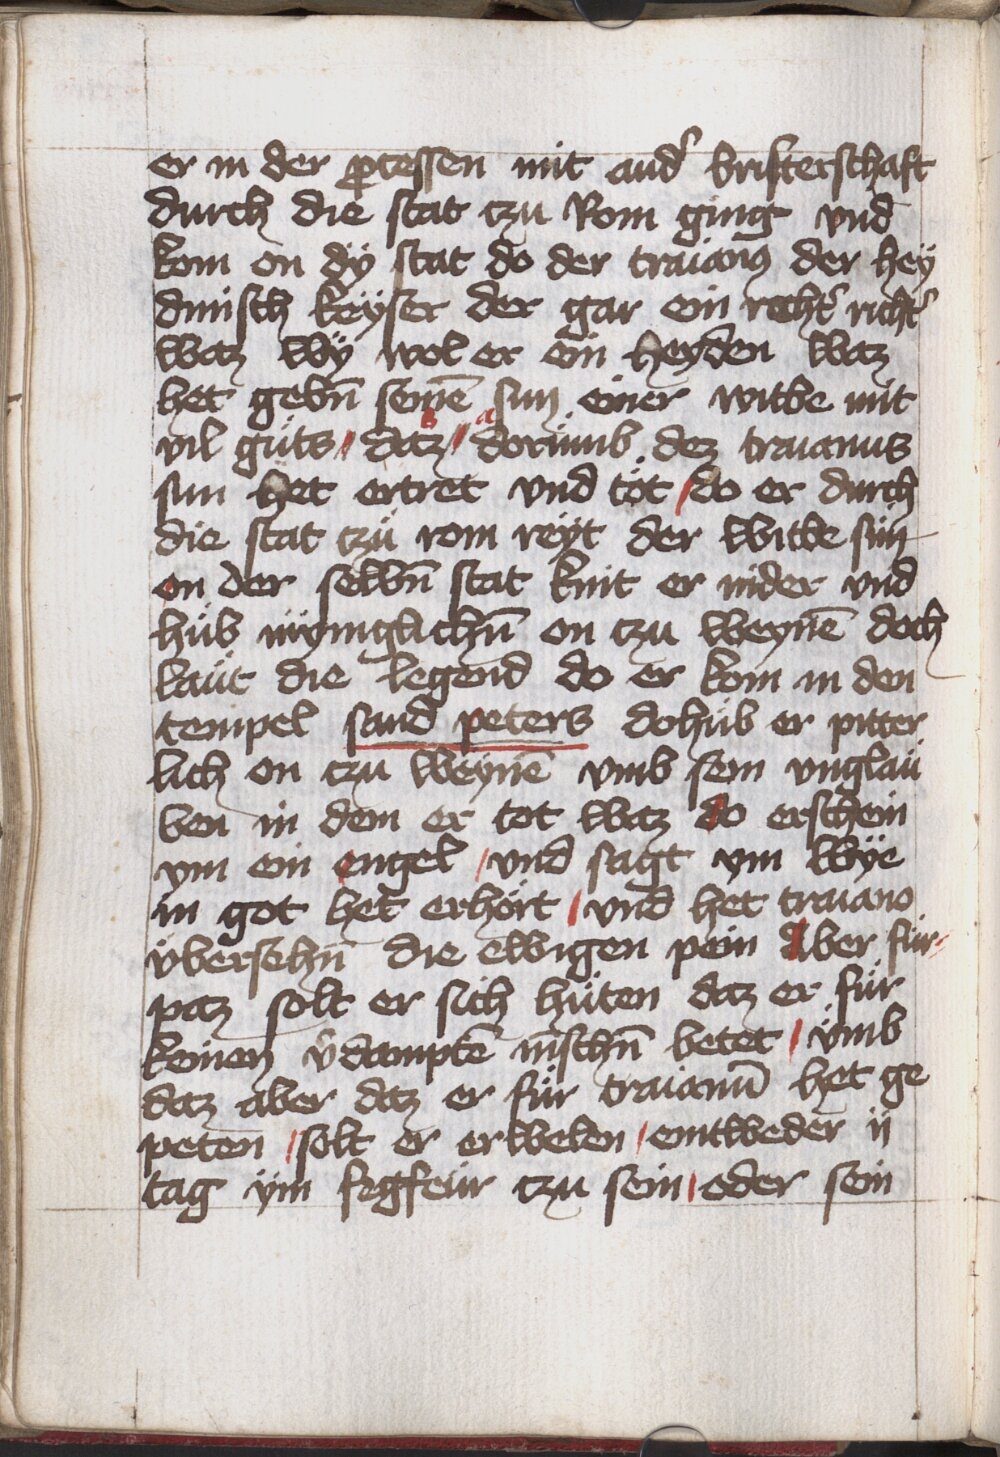 er in der ꝓcessen mit and᷑ bristerschaft
durch die stat czu Rom ging vnd
kom on dÿ stat do der traianꝰ der heÿ
dnisch keÿser der gar ein recht᷑ richt᷑
waz wÿ wol er ein heyden waz
het gebn̄ seinē sun einer witbe mit
vil guͤts / datz b / a dorumb dez traianus
sun het ertret vnd toͤt / do er durch
die stat czuͤ rom reyt der witbe sun
on der selbn̄ stat knit er nider vnd
huͤb mÿniglichn̄ on czu weynē doch
lauͤt die legend do er kom in den
tempel sand peters do huͤb er pitter
lich on czu weynē vmb sein vnglau
ben in dem er tot waz do erschein
ym ein engel / vnd sagt ym wÿe
in got het erhoͤrt / vnd het traiano
vͤbersehn̄ die ewigen pein Aber fuͤr-
paz solt er sich huͤten daz er fuͤr
keinen v᷑damptē mēschn̄ betet / vͤmb
daz aber daz er fuͤr traianū het ge
peten / solt er erwelen / eintweder ij
tag ÿm fegfeur czu sein / oder sein